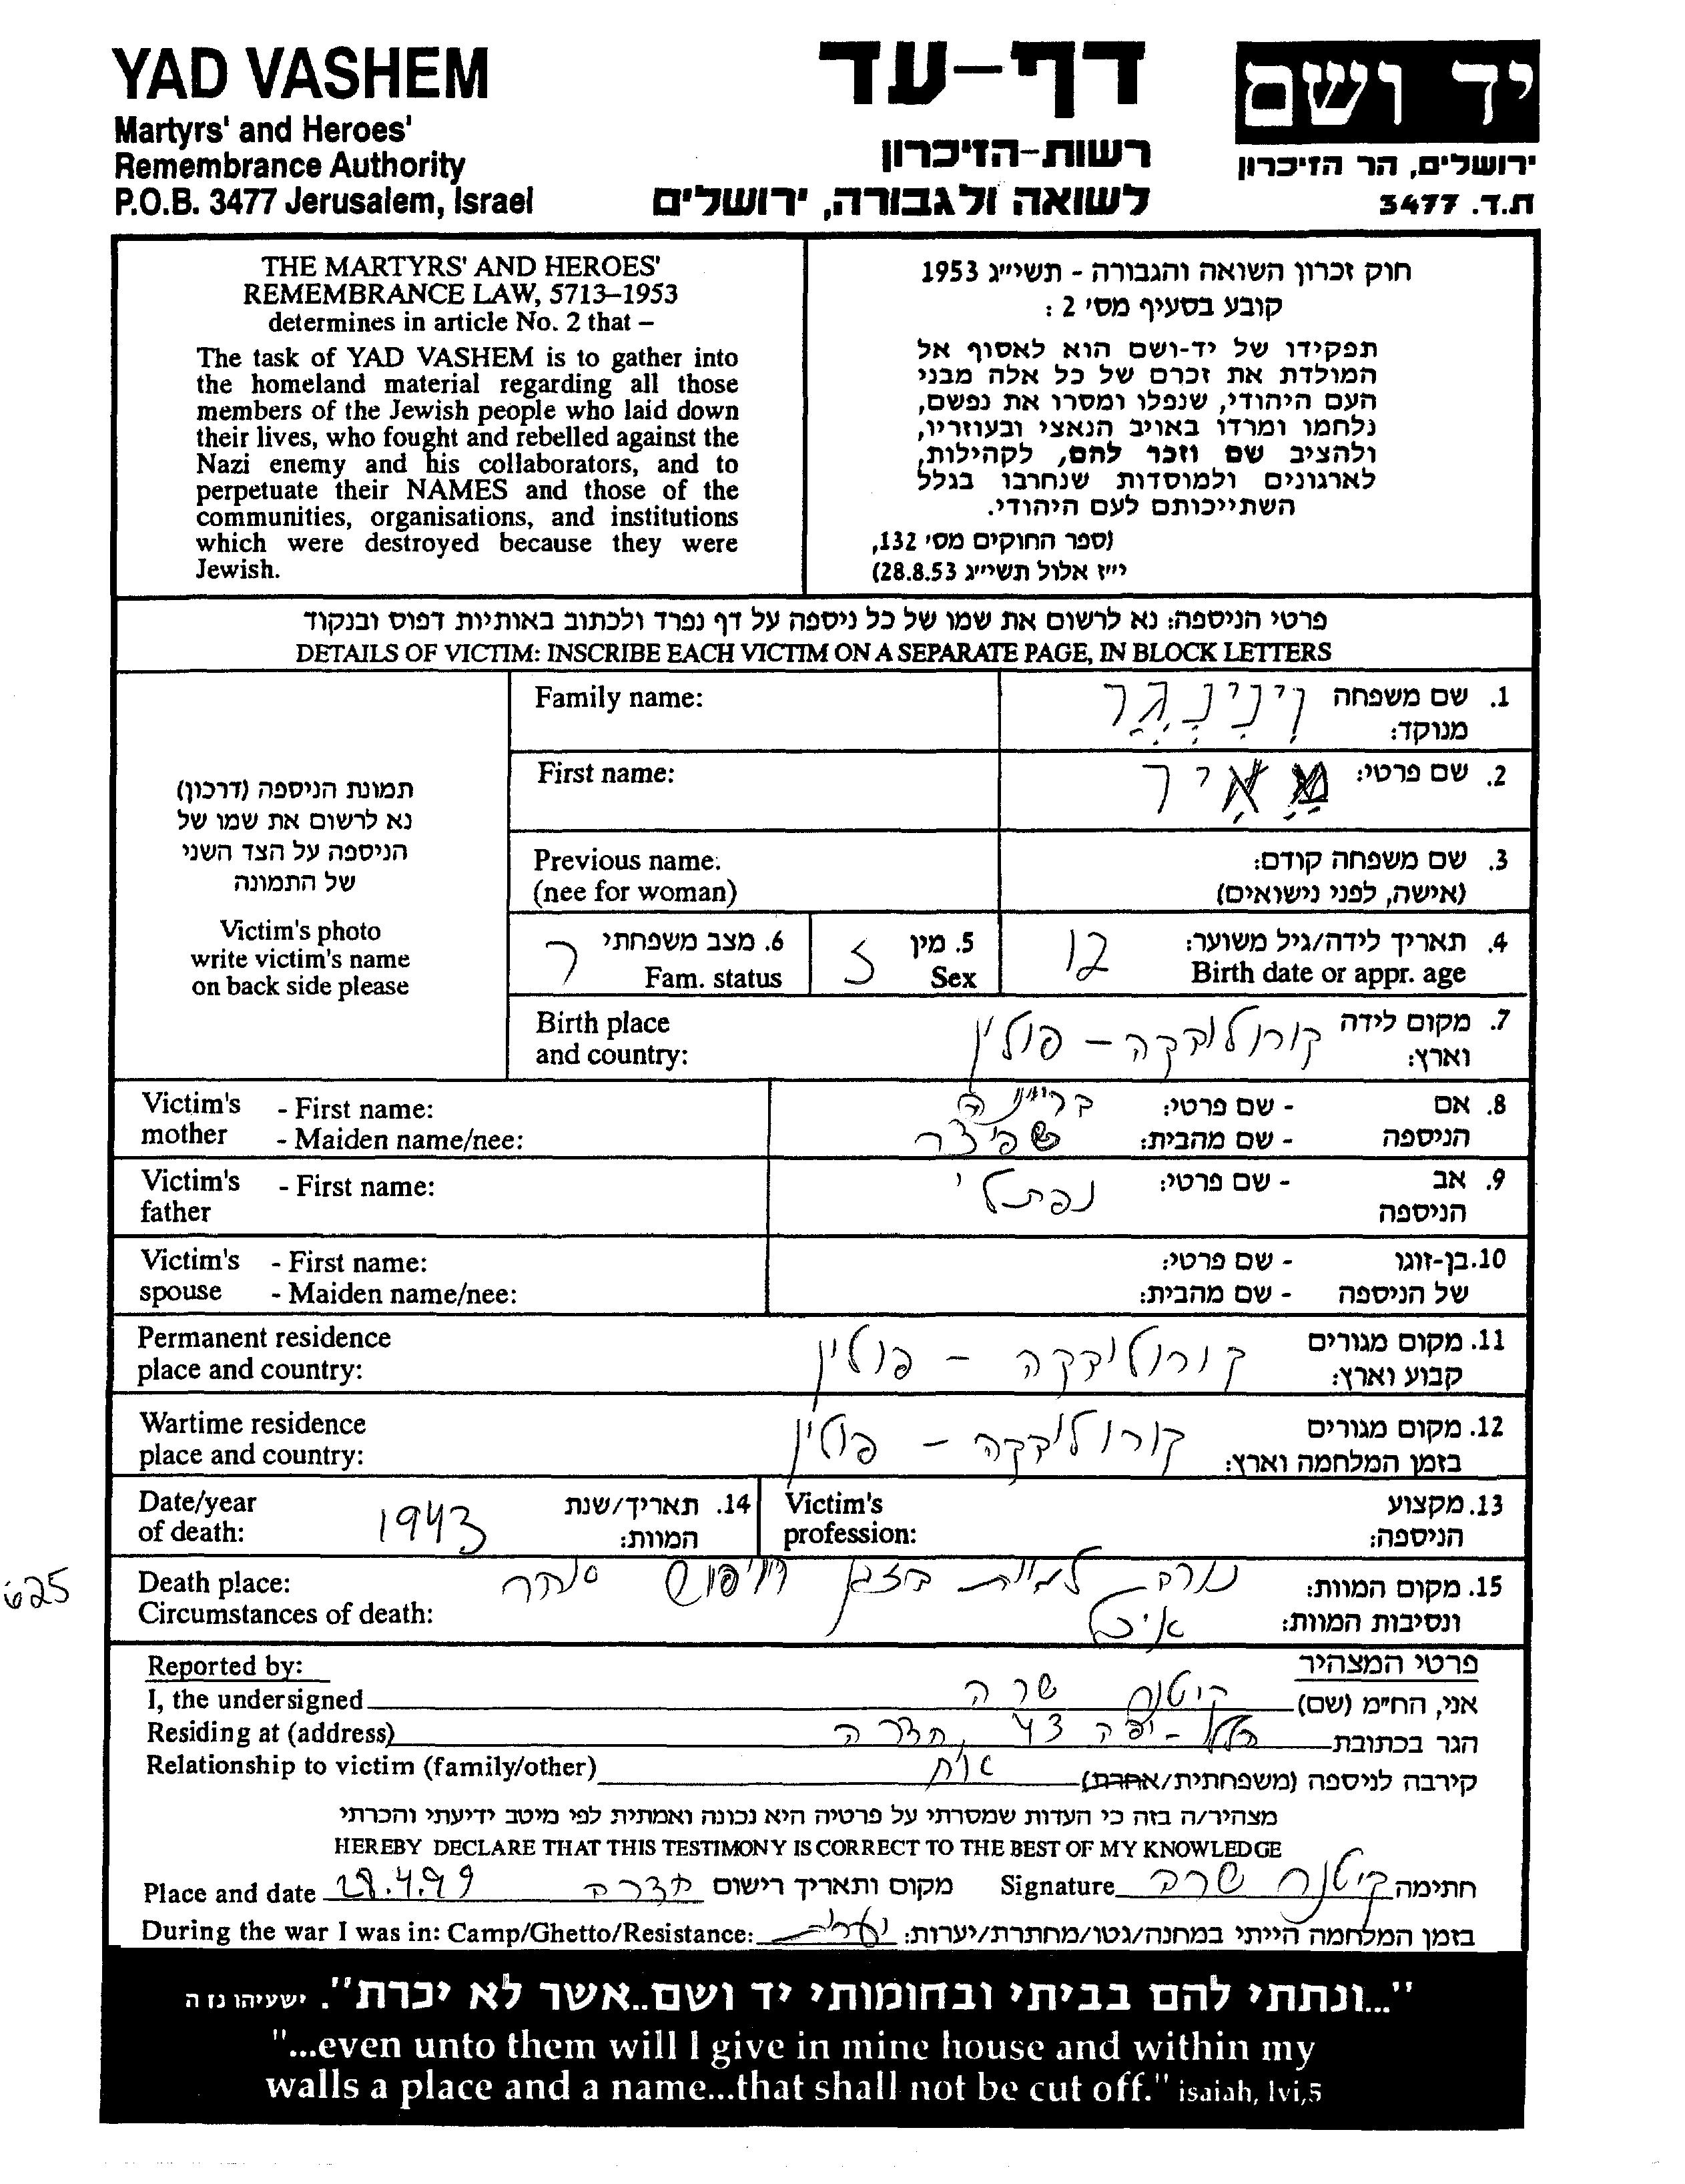 YAD VASHEM
Martyrs' and Heroes'
Remembrance Authority
P.O.B. 3477 Jerusalem, Israel
דף-עד
רשות-הזיכרון
לשואה ולגבורה, ירושלים
יד ושם
ירושלים, הר הזיכרון
ת.ד. 3477
THE MARTYRS' AND HEROES'
REMEMBRANCE LAW, 5713–1953
determines in article No. 2 that –
The task of YAD VASHEM is to gather into
the homeland material regarding all those
members of the Jewish people who laid down
their lives, who fought and rebelled against the
Nazi enemy and his collaborators, and to
perpetuate their NAMES and those of the
communities, organisations, and institutions
which were destroyed because they were
Jewish.
חוק זכרון השואה והגבורה - תשי״ג 1953
קובע בסעיף מס' 2 :
תפקידו של יד-ושם הוא לאסוף אל
המולדת את זכרם של כל אלה מבני
העם היהודי, שנפלו ומסרו את נפשם,
נלחמו ומרדו באויב הנאצי ובעוזריו,
ולהציב שם וזכר להם, לקהילות,
לארגונים ולמוסדות שנחרבו בגלל
השתייכותם לעם היהודי.
(ספר החוקים מס' 132,
י״ז אלול תשי״ג 28.8.53)
פרטי הניספה: נא לרשום את שמו של כל ניספה על דף נפרד ולכתוב באותיות דפוס ובנקוד
DETAILS OF VICTIM: INSCRIBE EACH VICTIM ON A SEPARATE PAGE, IN BLOCK LETTERS
תמונת הניספה (דרכון)
נא לרשום את שמו של
הניספה על הצד השני
של התמונה
Victim's photo
write victim's name
on back side please
Family name: וִינִינְגֶר 1. שם משפחה
מנוקד:
First name: מֵאִיר 2. שם פרטי:
Previous name: 3. שם משפחה קודם:
(nee for woman) (אישה, לפני נישואים)
ר 6. מצב משפחתי ז 5. מין 12 4. תאריך לידה/גיל משוער:
Fam. status Sex Birth date or appr. age
Birth place קורולובקה - פולין 7. מקום לידה
and country: וארץ:
Victim's - First name: - שם פרטי: 8. אם
mother - Maiden name/nee: שפיצר - שם מהבית: הניספה
Victim's - First name: נפתלי - שם פרטי: 9. אב
father הניספה
Victim's - First name: - שם פרטי: 10. בן-זוגו
spouse - Maiden name/nee: - שם מהבית: של הניספה
Permanent residence קורולובקה - פולין 11. מקום מגורים
place and country: קבוע וארץ:
Wartime residence קורולובקה - פולין 12. מקום מגורים
place and country: בזמן המלחמה וארץ:
Date/year 1943 14. תאריך/שנת Victim's 13. מקצוע
of death: המוות: profession: הניספה:
625
Death place: בזמן חיפוש 15. מקום המוות:
Circumstances of death: אוכל ונסיבות המוות:
Reported by: פרטי המצהיר
I, the undersigned קיטנר שרה אני, הח״מ (שם)
Residing at (address) הלל-יפה 43, חדרה הגר בכתובת
Relationship to victim (family/other) אחות קירבה לניספה (משפחתית/אחרת)
מצהיר/ה בזה כי העדות שמסרתי על פרטיה היא נכונה ואמתית לפי מיטב ידיעתי והכרתי
HEREBY DECLARE THAT THIS TESTIMONY IS CORRECT TO THE BEST OF MY KNOWLEDGE
Place and date 28.4.99 חדרה מקום ותאריך רישום Signature קיטנר שרה חתימה
During the war I was in: Camp/Ghetto/Resistance: בזמן המלחמה הייתי במחנה/גטו/מחתרת/יערות:
"...ונתתי להם בביתי ובחומותי יד ושם..אשר לא יכרת". ישעיהו נו ה
"...even unto them will I give in mine house and within my
walls a place and a name...that shall not be cut off." isaiah, lvi,5